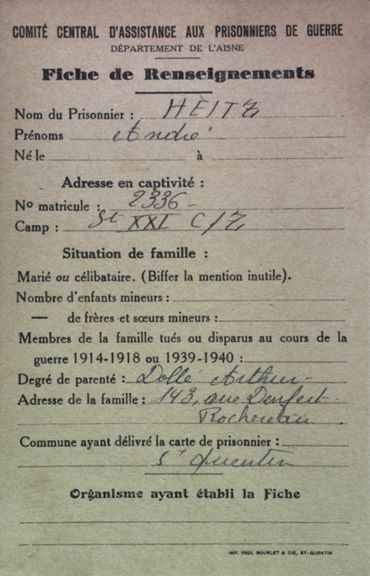 COMITÉ CENTRAL D'ASSISTANCE AUX PRISONNIERS DE GUERRE
DÉPARTEMENT DE L'AISNE
Fiche de Renseignements
Nom du Prisonnier : HEITZ
Prénoms André
Né le à
Adresse en captivité :
No matricule : 2336
Camp : St XXI C/Z
Situation de famille :
Marié ou célibataire. (Biffer la mention inutile).
Nombre d'enfants mineurs :
— de frères et sœurs mineurs :
Membres de la famille tués ou disparus au cours de la
guerre 1914-1918 ou 1939-1940 :
Degré de parenté : Dollé Arthur
Adresse de la famille : 143, rue Denfert
Rochereau
Commune ayant délivré la carte de prisonnier :
St Quentin
Organisme ayant établi la Fiche
IMP. PAUL BOURLET & CIE, ST-QUENTIN